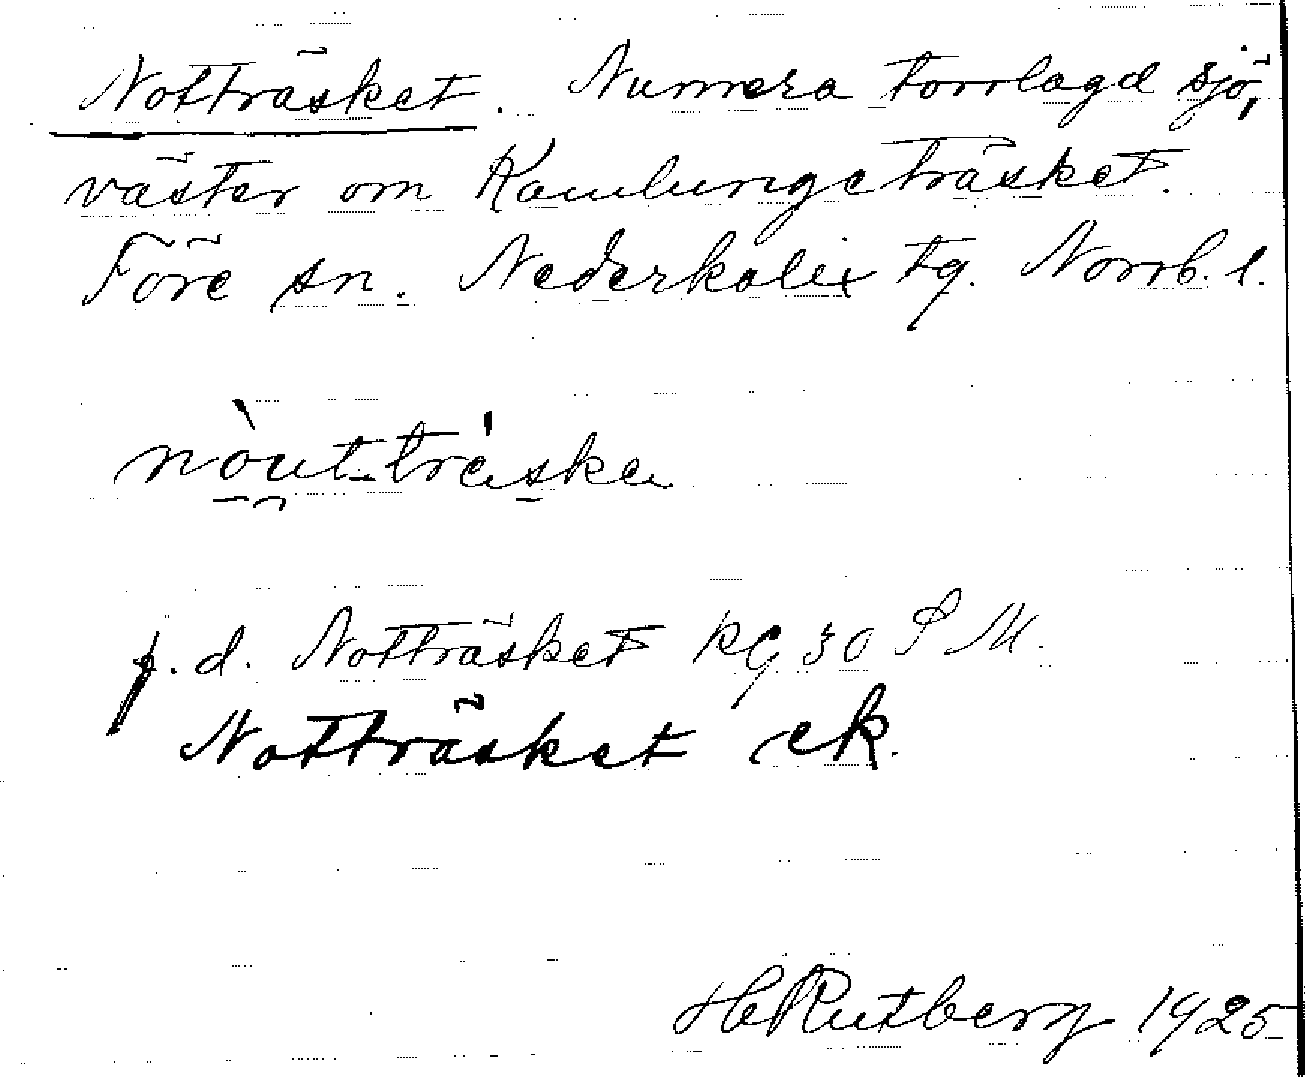 Notträsket. Numera torrlagd sjö,
väster om Kamlungeträsket.
Töre sn. Nederkalix tg. Norrb. l.
nòut-trä'ske
f. d. Notträsket Kg 30 S M.
Notträsket ek.
H Rutberg 1925